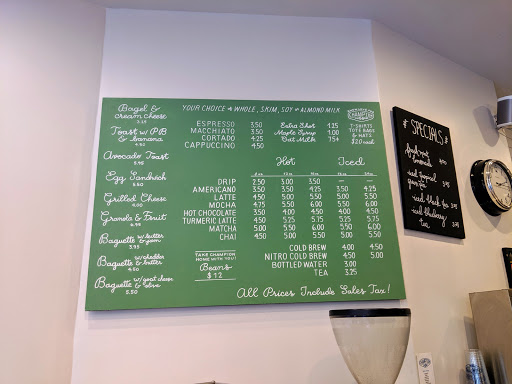 Bagel &
cream cheese
Toast w/ PB
& banana
4.50
Avocado Toast
Egg Sandwich
5.50
Grilled Cheese
Granola & Fruit
Baguette w/ butter
& jam
3.95
Baguette w/ cheddar
& butter
Baguette w/ goat cheese
& olive
5.50
YOUR CHOICE of WHOLE, SKIM, SOY or ALMOND MILK
ESPRESSO 3.50
MACCHIATO 3.50
CORTADO 4.25
CAPPUCCINO 4.50
Extra Shot 1.25
Maple Syrup 1.00
Oat Milk .75¢
CHAMPION
T-SHIRTS
TOTE BAGS
& HATS
$20 each
Hot Iced
DRIP 2.50 3.00 3.50 — —
AMERICANO 3.50 3.50 4.25 3.50 4.25
LATTE 4.50 5.00 5.50 5.00 5.50
MOCHA 4.75 5.50 6.00 5.50 6.00
HOT CHOCOLATE 3.50 4.00 4.50 4.00 4.50
TURMERIC LATTE 4.50 5.25 5.75 5.25 5.75
MATCHA 5.00 5.50 6.00 5.50 6.00
CHAI 4.50 5.00 5.50 5.00 5.50
COLD BREW 4.00 4.50
NITRO COLD BREW 4.50 5.00
BOTTLED WATER 3.00
TEA 3.25
TAKE CHAMPION
HOME WITH YOU!
Beans
$12
All Prices Include Sales Tax!
SPECIALS
iced
iced black tea
iced blueberry
tea